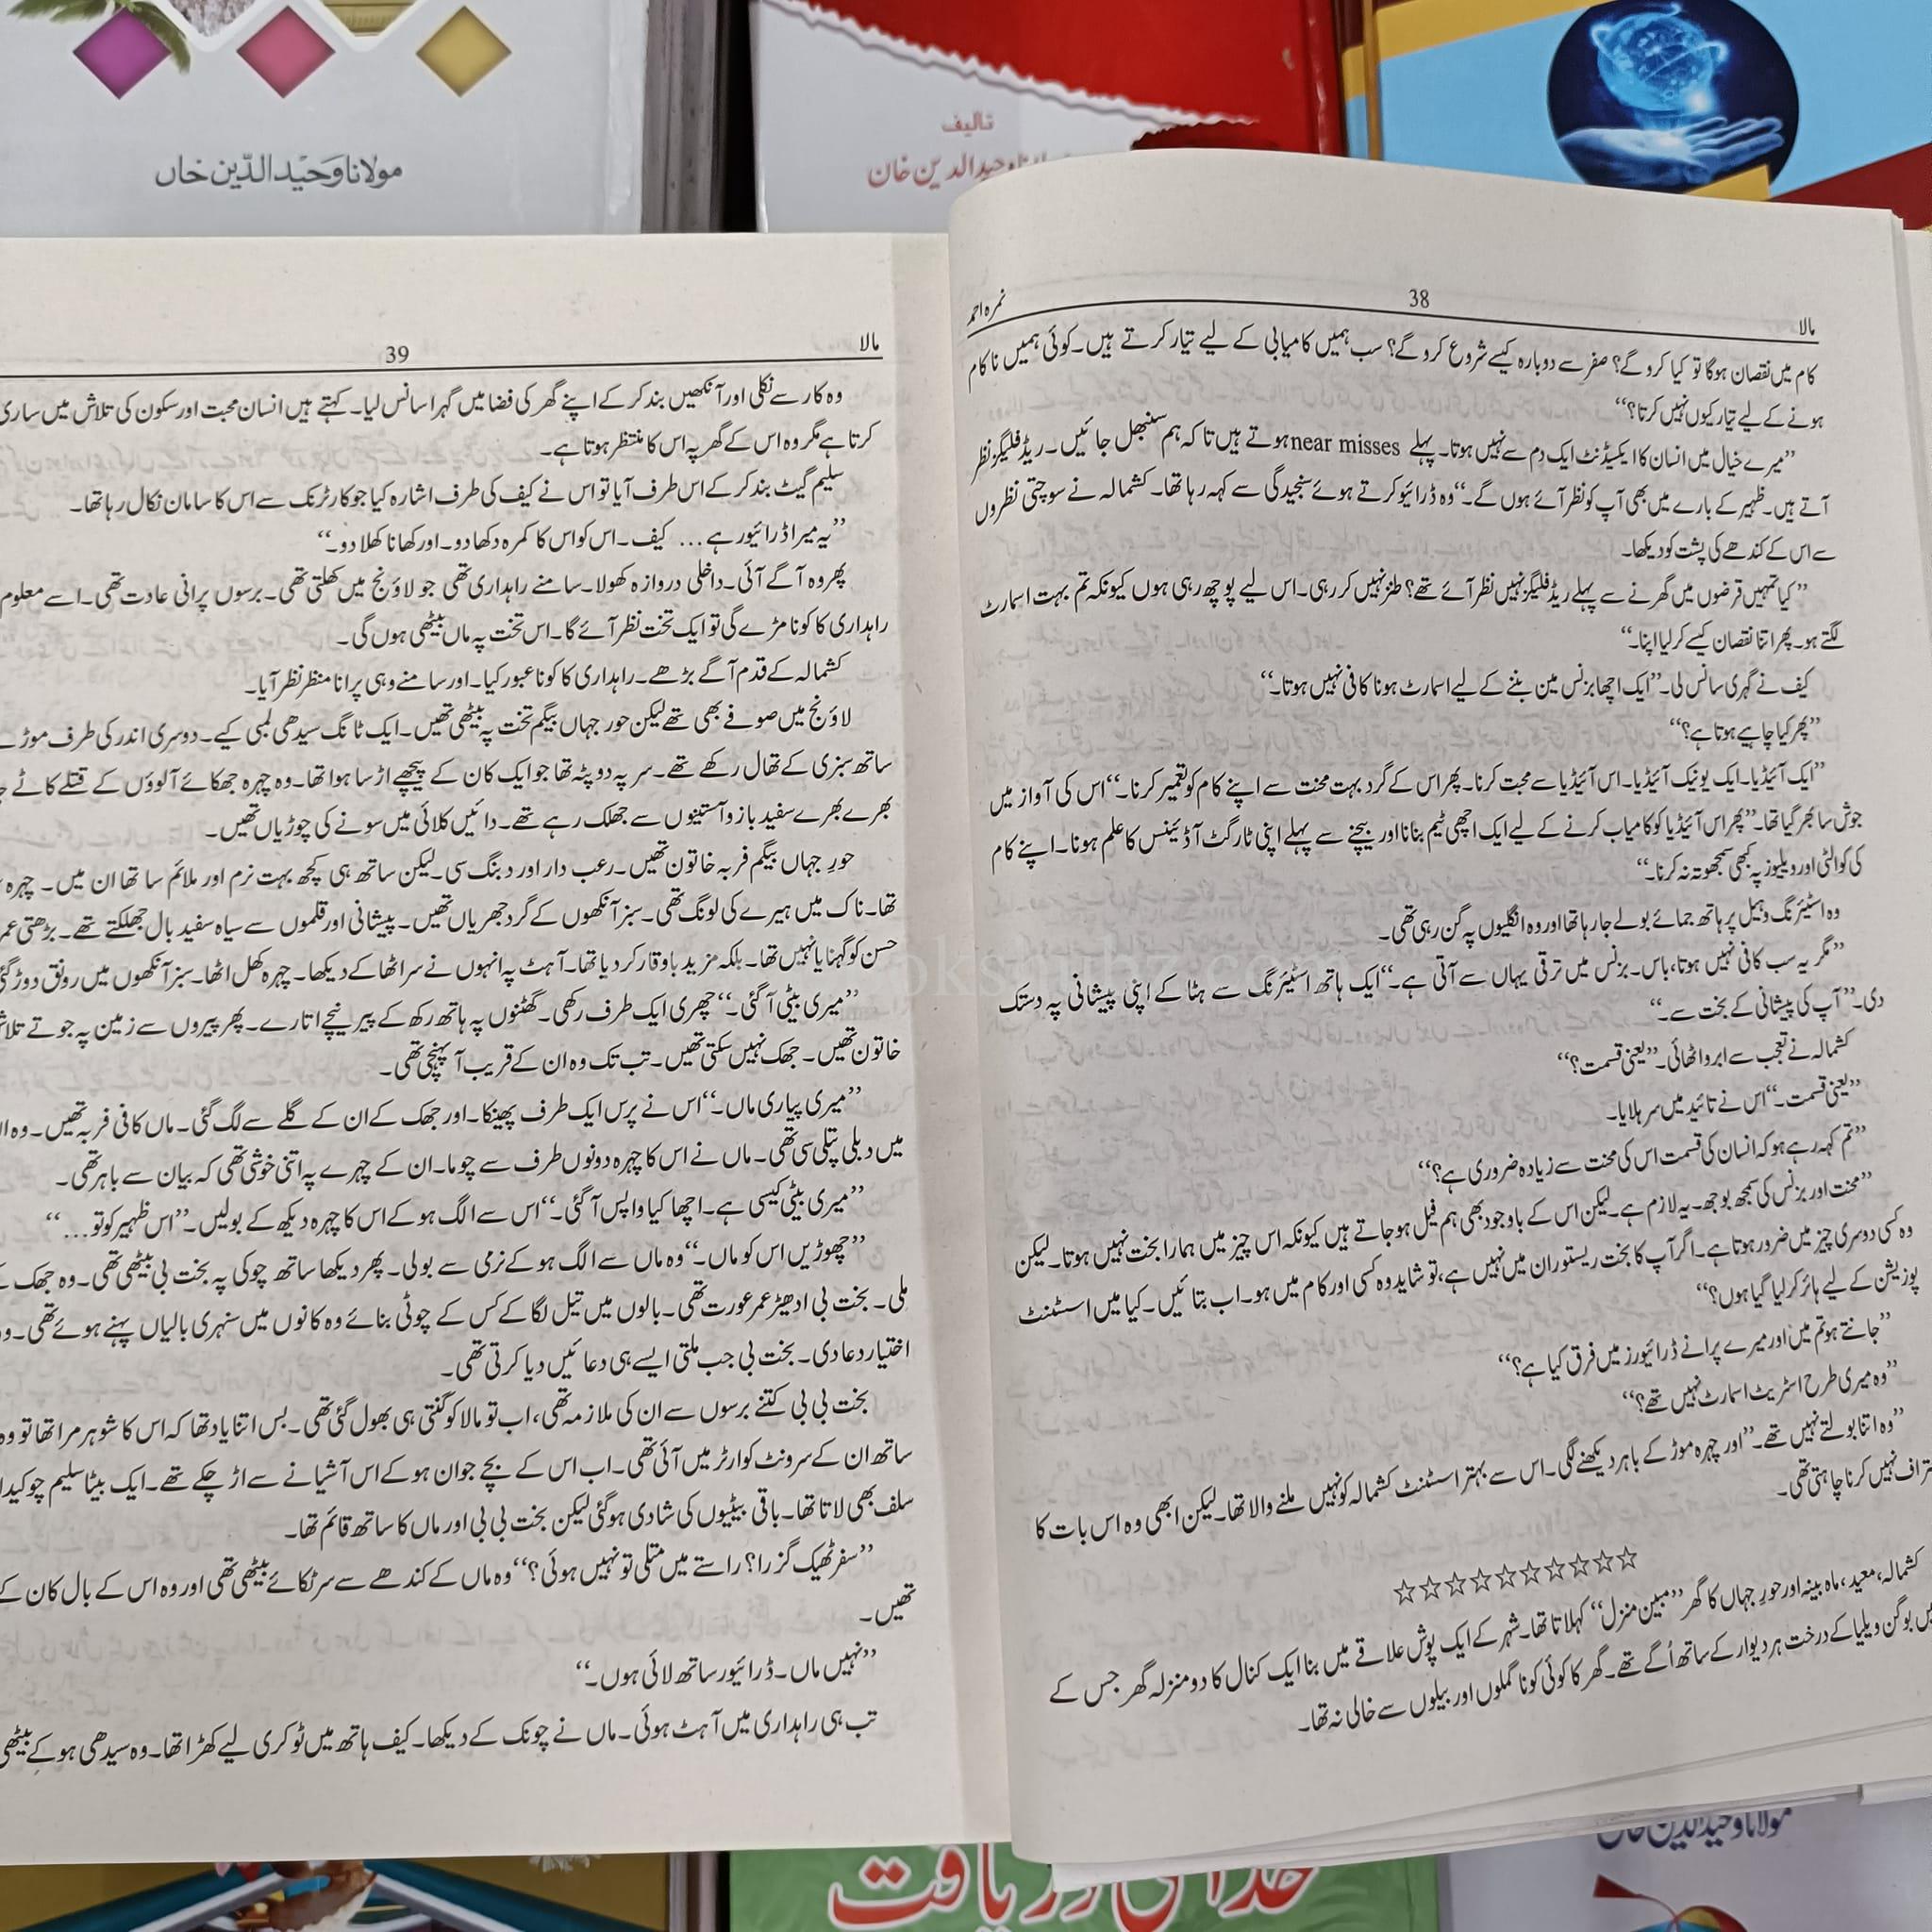 مولانا وحید الدّین خاں
تالیف
وحید الدین خان
مالا
38
نمرہ احمد
کام میں نقصان ہوگا تو کیا کرو گے؟ صفر سے دوبارہ کیسے شروع کرو گے؟ سب ہمیں کامیابی کے لیے تیار کرتے ہیں۔ کوئی ہمیں ناکام
ہونے کے لیے تیار کیوں نہیں کرتا؟‘‘
’’میرے خیال میں انسان کا ایکسیڈنٹ ایک دم سے نہیں ہوتا۔ پہلے near misses ہوتے ہیں تا کہ ہم سنبھل جائیں۔ ریڈ فلیگز نظر
آتے ہیں۔ ظہیر کے بارے میں بھی آپ کو نظر آئے ہوں گے۔‘‘ وہ ڈرائیو کرتے ہوئے سنجیدگی سے کہہ رہا تھا۔ کشمالہ نے سوچتی نظروں
سے اس کے کندھے کی پشت کو دیکھا۔
’’کیا تمہیں قرضوں میں گھرنے سے پہلے ریڈ فلیگز نہیں نظر آئے تھے؟ طنز نہیں کر رہی۔ اس لیے پوچھ رہی ہوں کیونکہ تم بہت اسمارٹ
لگتے ہو۔ پھر اتنا نقصان کیسے کر لیا اپنا۔‘‘
کیف نے گہری سانس لی۔ ’’ایک اچھا بزنس مین بننے کے لیے اسمارٹ ہونا کافی نہیں ہوتا۔‘‘
’’پھر کیا چاہیے ہوتا ہے؟‘‘
’’ایک آئیڈیا۔ ایک یونیک آئیڈیا۔ اس آئیڈیا سے محبت کرنا۔ پھر اس کے گرد بہت محنت سے اپنے کام کو تعمیر کرنا۔‘‘ اس کی آواز میں
جوش سا بھر گیا تھا۔ ’’پھر اس آئیڈیا کو کامیاب کرنے کے لیے ایک اچھی ٹیم بنانا اور بیچنے سے پہلے اپنی ٹارگٹ آڈیئنس کا علم ہونا۔ اپنے کام
کی کوالٹی اور ویلیوز پہ کبھی سمجھوتہ نہ کرنا۔‘‘
وہ اسٹیئرنگ وہیل پر ہاتھ جمائے بولے جا رہا تھا اور وہ انگلیوں پہ گن رہی تھی۔
’’مگر یہ سب کافی نہیں ہوتا، باس۔ بزنس میں ترقی یہاں سے آتی ہے۔‘‘ ایک ہاتھ اسٹیئرنگ سے ہٹا کے اپنی پیشانی پہ دستک
دی۔ ’’آپ کی پیشانی کے بخت سے۔‘‘
کشمالہ نے تعجب سے ابرو اٹھائی۔ ’’یعنی قسمت؟‘‘
’’یعنی قسمت۔‘‘ اس نے تائید میں سر ہلایا۔
’’تم کہہ رہے ہو کہ انسان کی قسمت اس کی محنت سے زیادہ ضروری ہے؟‘‘
’’محنت اور بزنس کی سمجھ بوجھ۔ یہ لازم ہے۔ لیکن اس کے باوجود بھی ہم فیل ہو جاتے ہیں کیونکہ اس چیز میں ہمارا بخت نہیں ہوتا۔ لیکن
وہ کسی دوسری چیز میں ضرور ہوتا ہے۔ اگر آپ کا بخت ریستوران میں نہیں ہے، تو شاید وہ کسی اور کام میں ہو۔ اب بتائیں۔ کیا میں اسسٹنٹ
پوزیشن کے لیے ہائر کر لیا گیا ہوں؟‘‘
’’جانتے ہو تم میں اور میرے پرانے ڈرائیورز میں فرق کیا ہے؟‘‘
’’وہ میری طرح اسٹریٹ اسمارٹ نہیں تھے؟‘‘
’’وہ اتنا بولتے نہیں تھے۔‘‘ اور چہرہ موڑ کے باہر دیکھنے لگی۔ اس سے بہتر اسسٹنٹ کشمالہ کو نہیں ملنے والا تھا۔ لیکن ابھی وہ اس بات کا
نہیں کرنا چاہتی تھی۔
☆☆☆☆☆☆☆☆☆☆
کشمالہ، معید، ماہ بینہ اور حورِ جہاں کا گھر ’’مبین منزل‘‘ کہلاتا تھا۔ شہر کے ایک پوش علاقے میں بنا ایک کنال کا دو منزلہ گھر جس کے
بوگن ویلیا کے درخت ہر دیوار کے ساتھ اُگے تھے۔ گھر کا کوئی کونا گملوں اور بیلوں سے خالی نہ تھا۔
مالا
39
وہ کار سے نکلی اور آنکھیں بند کر کے اپنے گھر کی فضا میں گہرا سانس لیا۔ کہتے ہیں انسان محبت اور سکون کی تلاش میں ساری
کرتا ہے مگر وہ اس کے گھر پہ اس کا منتظر ہوتا ہے۔
سلیم گیٹ بند کر کے اس طرف آیا تو اس نے کیف کی طرف اشارہ کیا جو کار ٹرنک سے اس کا سامان نکال رہا تھا۔
’’یہ میرا ڈرائیور ہے... کیف۔ اس کو اس کا کمرہ دکھا دو۔ اور کھانا کھلا دو۔‘‘
پھر وہ آگے آئی۔ داخلی دروازہ کھولا۔ سامنے راہداری تھی جو لاؤنج میں کھلتی تھی۔ برسوں پرانی عادت تھی۔ اسے معلوم
راہداری کا کونا مڑے گی تو ایک تخت نظر آئے گا۔ اس تخت پہ ماں بیٹھی ہوں گی۔
کشمالہ کے قدم آگے بڑھے۔ راہداری کا کونا عبور کیا۔ اور سامنے وہی پرانا منظر نظر آیا۔
لاؤنج میں صوفے بھی تھے لیکن حور جہاں بیگم تخت پہ بیٹھی تھیں۔ ایک ٹانگ سیدھی لمبی کیے۔ دوسری اندر کی طرف موڑے
ساتھ سبزی کے تھال رکھے تھے۔ سر پہ دوپٹہ تھا جو ایک کان کے پیچھے اڑسا ہوا تھا۔ وہ چہرہ جھکائے آلوؤں کے قتلے کاٹے
بھرے بھرے سفید بازو آستینوں سے جھلک رہے تھے۔ دائیں کلائی میں سونے کی چوڑیاں تھیں۔
حورِ جہاں بیگم فربہ خاتون تھیں۔ رعب دار اور دبنگ سی۔ لیکن ساتھ ہی کچھ بہت نرم اور ملائم سا تھا ان میں۔ چہرہ
تھا۔ ناک میں ہیرے کی لونگ تھی۔ سبز آنکھوں کے گرد جھریاں تھیں۔ پیشانی اور قلموں سے سیاہ سفید بال جھلکتے تھے۔ بڑھتی عمر
حسن کو گہنایا نہیں تھا۔ بلکہ مزید باوقار کر دیا تھا۔ آہٹ پہ انہوں نے سر اٹھا کے دیکھا۔ چہرہ کھل اٹھا۔ سبز آنکھوں میں رونق دوڑ گئی
’’میری بیٹی آ گئی۔‘‘ چھری ایک طرف رکھی۔ گھٹنوں پہ ہاتھ رکھ کے پیر نیچے اتارے۔ پھر پیروں سے زمین پہ جوتے
خاتون تھیں۔ جھک نہیں سکتی تھیں۔ تب تک وہ ان کے قریب آ پہنچی تھی۔
’’میری پیاری ماں۔‘‘ اس نے پرس ایک طرف پھینکا۔ اور جھک کے ان کے گلے سے لگ گئی۔ ماں کافی فربہ تھیں۔ وہ
میں دبلی پتلی سی تھی۔ ماں نے اس کا چہرہ دونوں طرف سے چوما۔ ان کے چہرے پہ اتنی خوشی تھی کہ بیان سے باہر تھی۔
’’میری بیٹی کیسی ہے۔ اچھا کیا واپس آ گئی۔‘‘ اس سے الگ ہو کے اس کا چہرہ دیکھ کے بولیں۔ ’’اس ظہیر کو تو...‘‘
’’چھوڑیں اس کو ماں۔‘‘ وہ ماں سے الگ ہو کے نرمی سے بولی۔ پھر دیکھا ساتھ چوکی پہ بخت بی بیٹھی تھی۔ وہ جھک
ملی۔ بخت بی ادھیڑ عمر عورت تھی۔ بالوں میں تیل لگا کے کس کے چوٹی بنائے وہ کانوں میں سنہری بالیاں پہنے ہوئے تھی۔
اختیار دعا دی۔ بخت بی جب ملتی ایسے ہی دعائیں دیا کرتی تھی۔
بخت بی بی کتنے برسوں سے ان کی ملازمہ تھی، اب تو مالا کو گنتی ہی بھول گئی تھی۔ بس اتنا یاد تھا کہ اس کا شوہر مرا تھا تو وہ
ساتھ ان کے سرونٹ کوارٹر میں آئی تھی۔ اب اس کے بچے جوان ہو کے اس آشیانے سے اڑ چکے تھے۔ ایک بیٹا سلیم
سلف بھی لاتا تھا۔ باقی بیٹیوں کی شادی ہو گئی لیکن بخت بی بی اور ماں کا ساتھ قائم تھا۔
’’سفر ٹھیک گزرا؟ راستے میں متلی تو نہیں ہوئی؟‘‘ وہ ماں کے کندھے سے سر ٹکائے بیٹھی تھی اور وہ اس کے بال کان کے
تھیں۔
’’نہیں ماں۔ ڈرائیور ساتھ لائی ہوں۔‘‘
تب ہی راہداری میں آہٹ ہوئی۔ ماں نے چونک کے دیکھا۔ کیف ہاتھ میں ٹوکری لیے کھڑا تھا۔ وہ سیدھی ہو کے بیٹھی
مولانا وحید الدین خاں